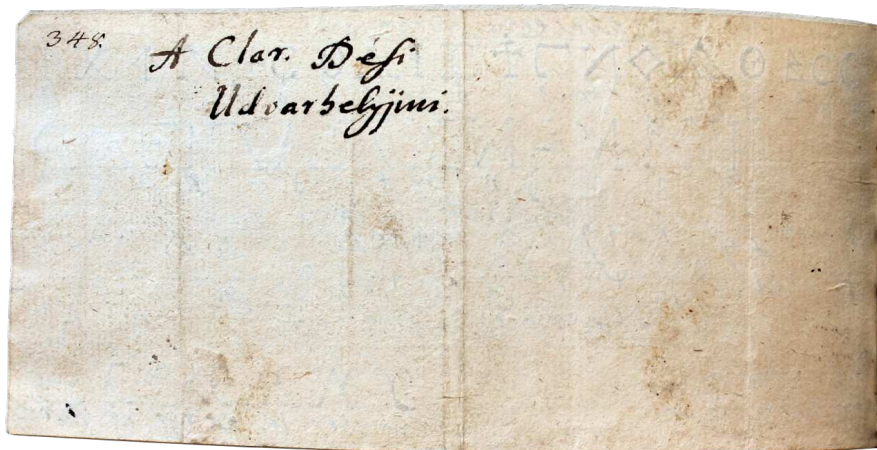 348.
A Clar. Dési
Udvarhelyjini.